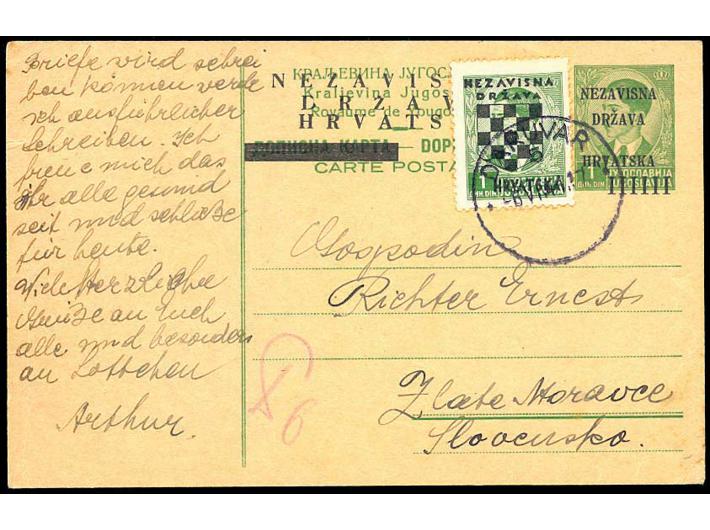 Briefe wird schrei
ben können werde
ich ausführlicher
schreiben. Ich
freue mich das
ihr alle gesund
seit und schließe
für heute.
Viele Herzliche
Grüße an Euch
alle und besonders
an Lottchen
Arthur.
КРАЉЕВИНА ЈУГОС
NEZAVIS
Kraljevina Jugos
DRŽAV
Royaume de Yougo
HRVATS
ДОПИСНА КАРТА — DOP
CARTE POSTA
NEZAVISNA
DRŽAVA
HRVATSKA
1
DIN. DIN
DARUVAR
NEZAVISNA
DRŽAVA
HRVATSKA
ЈУГОСЛАВИЈА
1
DIN
JUGOSL
Gospodin
Richter Ernest
Zlate Moravce
Slovensko.